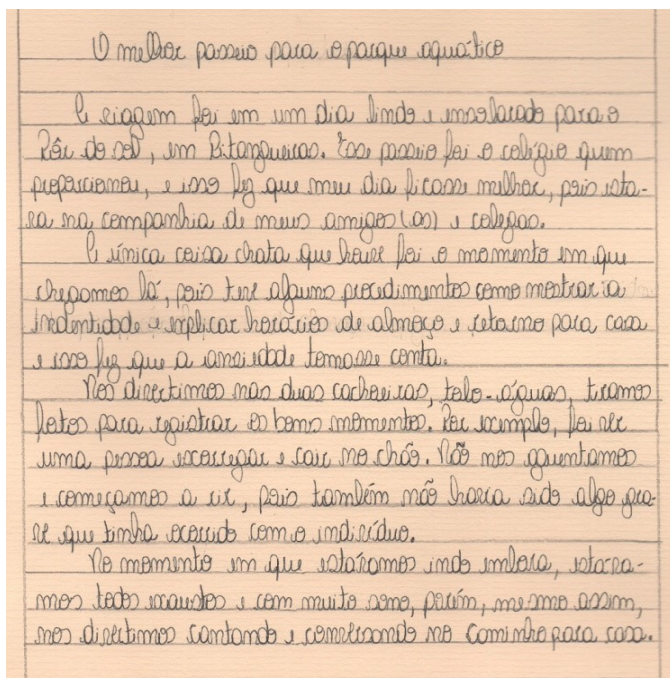 O melhor passeio para o parque aquático
A viagem foi em um dia lindo e ensolarado para o
Pôr do sol, em Pitangueiras. Esse passeio foi o colégio quem
proporcionou, e isso fez que meu dia ficasse melhor, pois esta-
va na companhia de meus amigos(as) e colegas.
A única coisa chata que houve foi o momento em que
chegamos lá, pois teve alguns procedimentos como mostrar a
indentidade e explicar horários de almoço e retorno para casa
e isso fez que a ansiedade tomasse conta.
Nos divertimos nas duas cachoeiras, tobo-águas, tiramos
fotos para registrar os bons momentos. Por exemplo, foi ver
uma pessoa escorregar e cair no chão. Não nos aguentamos
e começamos a rir, pois também não havia sido algo gra-
ve que tinha ocorrido com o indivíduo.
No momento em que estávamos indo embora, estáva-
mos todos exaustos e com muito sono, porém, mesmo assim,
nos divertimos cantando e conversando no caminho para casa.